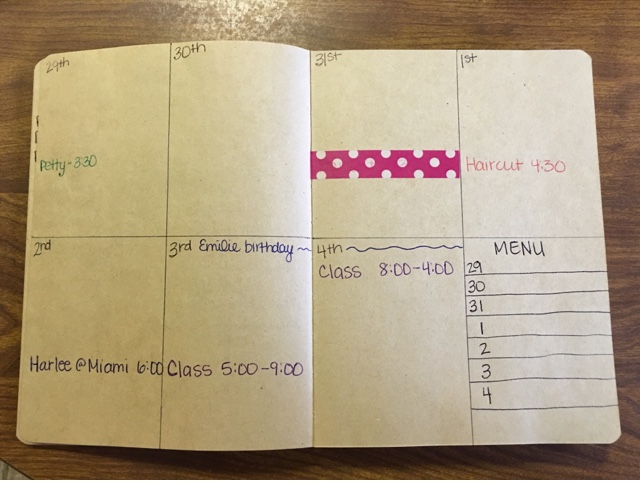 29th
Petty-3:30
30th
31st
1st
Haircut 4:30
2nd
Harlee @Miami 6:00
3rd Emilie birthday
Class 5:00-9:00
4th
Class 8:00-4:00
MENU
29
30
31
1
2
3
4